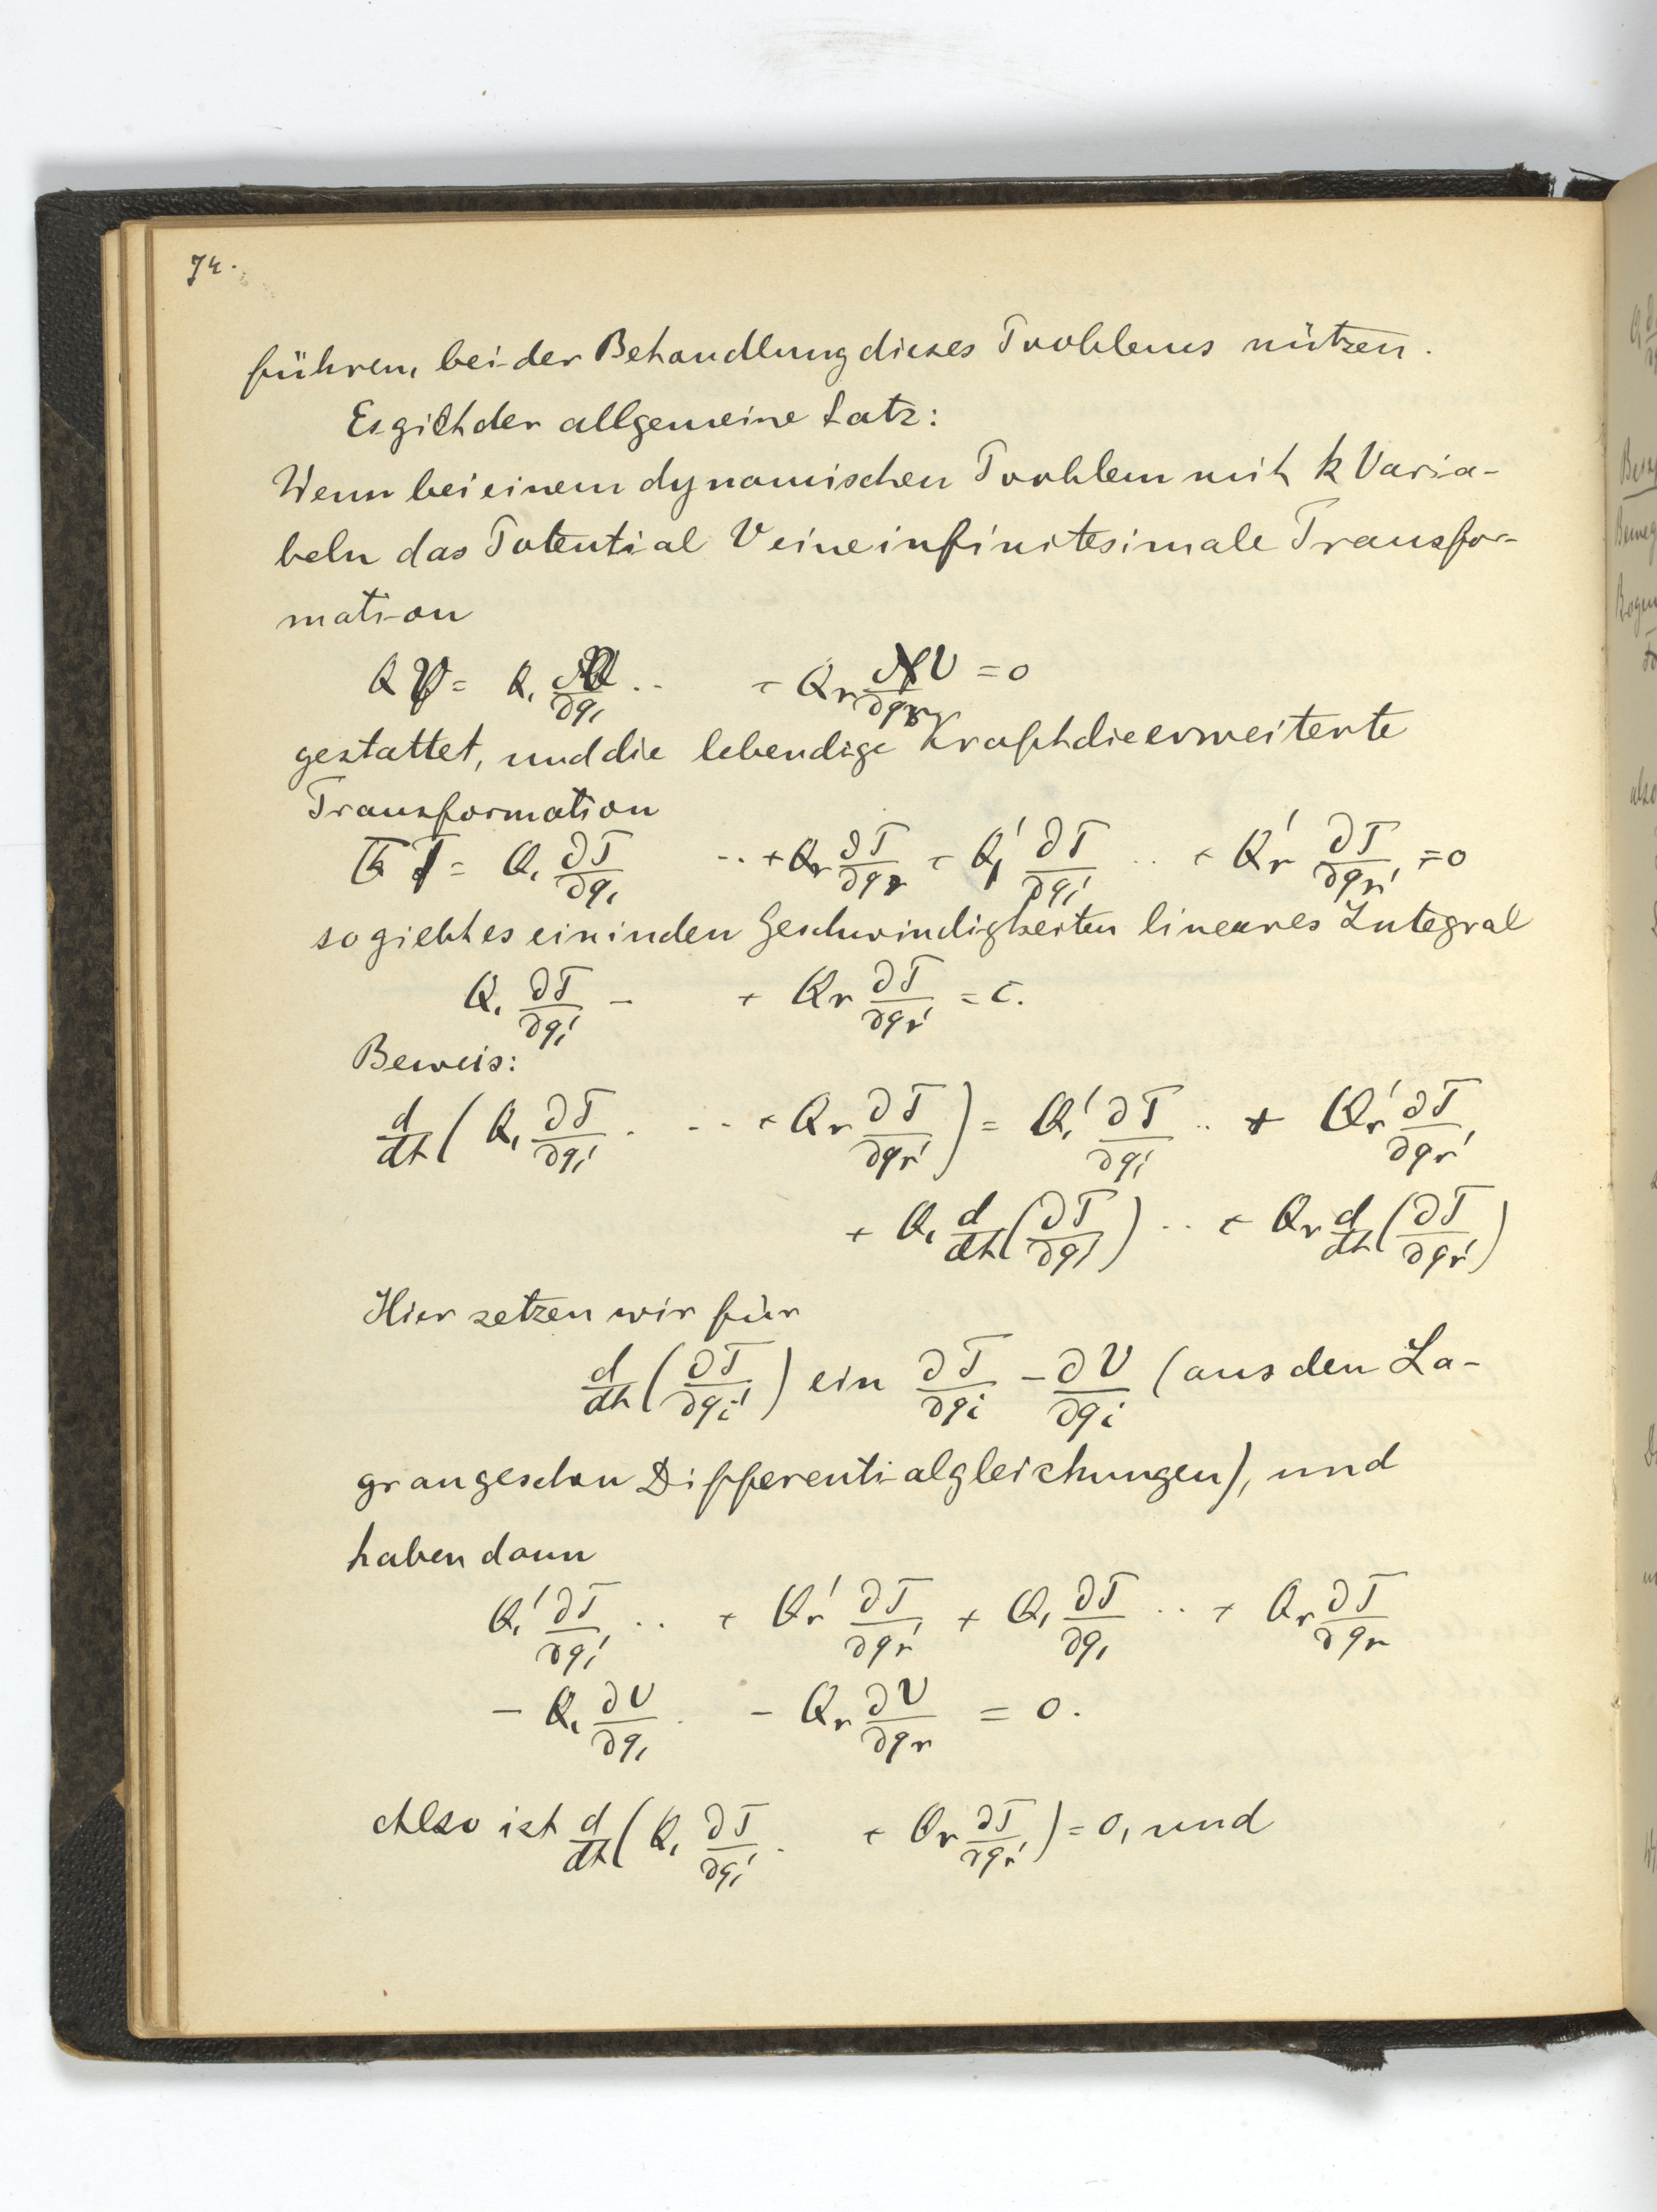 74.
führen, bei der Behandlung dieses Problems nützen.
Es gilt der allgemeine Satz:
Wenn bei einem dynamischen Problem mit k Varia-
beln das Potential V eine infinitesimale Transfor-
mation
Q V = Q₁ ∂V/∂q₁ .. + Qr ∂V/∂qr = 0
gestattet, und die lebendige Kraft die erweiterte
Transformation
Q̅ T = Q₁ ∂T/∂q₁ .. + Qr ∂T/∂qr + Q₁' ∂T/∂q₁' .. + Qr' ∂T/∂qr' = 0
so giebt es ein in den Geschwindigkeiten lineares Integral
Q₁ ∂T/∂q₁' - + Qr ∂T/∂qr' = c.
Beweis:
d/dt ( Q₁ ∂T/∂q₁' . .. + Qr ∂T/∂qr' ) = Q₁' ∂T/∂q₁' .. + Qr' ∂T/∂qr'
+ Q₁ d/dt (∂T/∂q₁') .. + Qr d/dt (∂T/∂qr')
Hier setzen wir für
d/dt (∂T/∂qi') ein ∂T/∂qi - ∂V/∂qi (aus den La-
grangeschen Differentialgleichungen), und
haben dann
Q₁' ∂T/∂q₁' .. + Qr' ∂T/∂qr' + Q₁ ∂T/∂q₁ .. + Qr ∂T/∂qr
- Q₁ ∂V/∂q₁ . - Qr ∂V/∂qr = 0.
Also ist d/dt ( Q₁ ∂T/∂q₁' . + Qr ∂T/∂qr' ) = 0, und